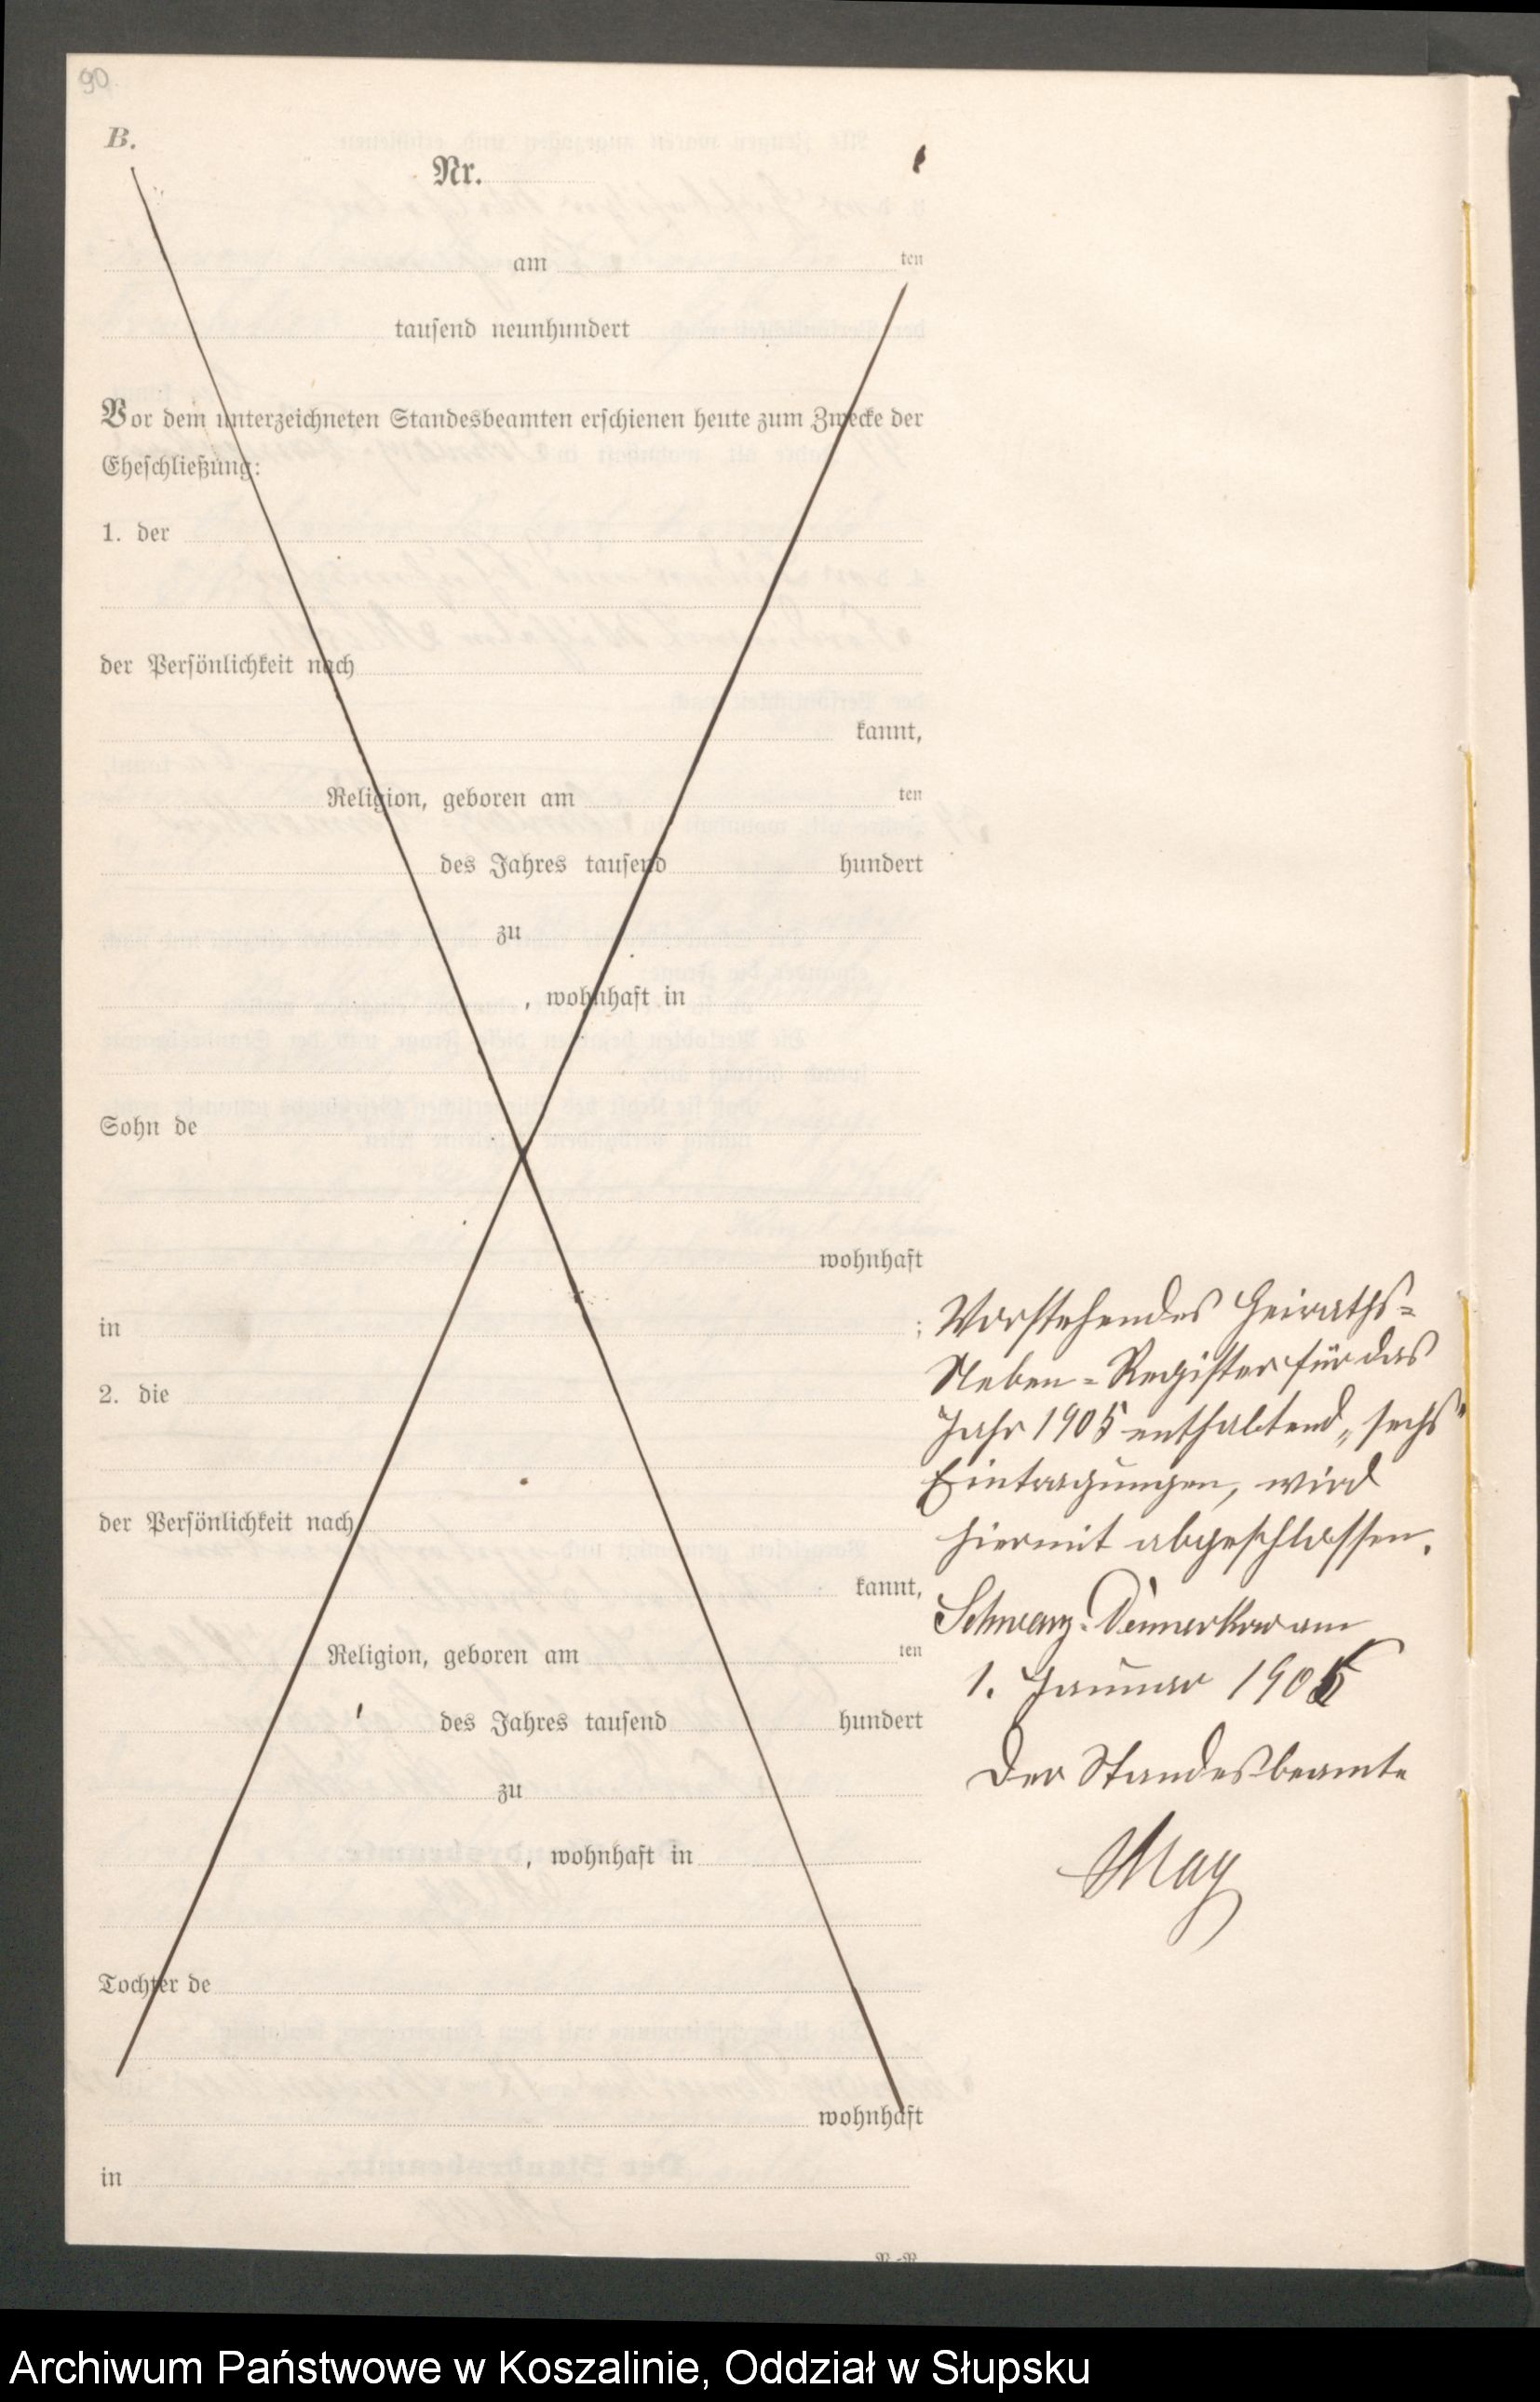 90.
B.
Nr.
am ten
tausend neunhundert
Vor dem unterzeichneten Standesbeamten erschienen heute zum Zwecke der
Eheschließung:
1. der
der Persönlichkeit nach
kannt,
Religion, geboren am ten
des Jahres tausend hundert
zu
, wohnhaft in
Sohn de
wohnhaft
in ;
2. die
der Persönlichkeit nach
kannt,
Religion, geboren am ten
des Jahres tausend hundert
zu
, wohnhaft in
Tochter de
wohnhaft
in
Vorstehendes Heiraths-
Neben-Register für das
Jahr 1905 enthaltend „sechs“
Eintragungen, wird
hiermit abgeschlossen.
am
1. Januar 190
Der Standesbeamte
May
Archiwum Państwowe w Koszalinie, Oddział w Słupsku